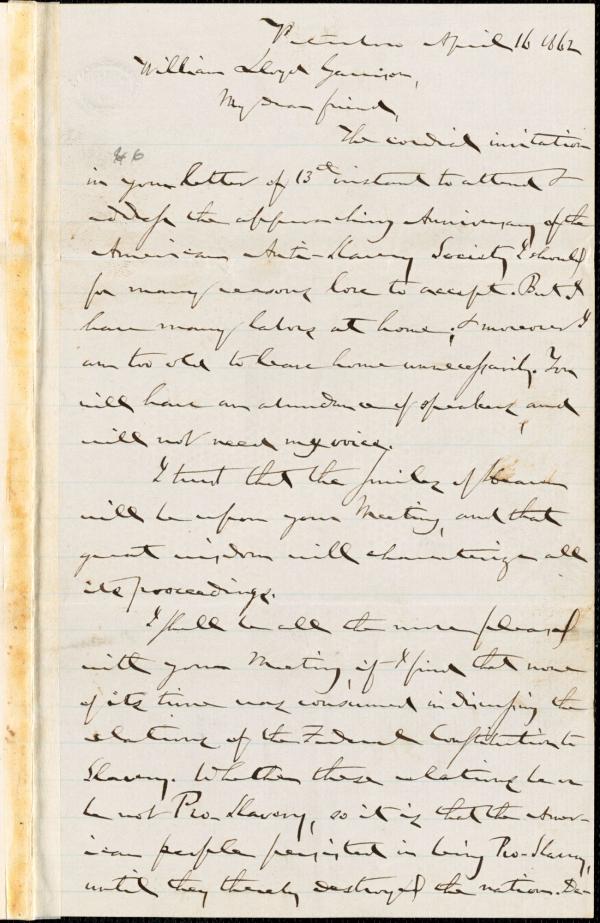 Peterboro April 16 1862
William Lloyd Garrison,
My dear friend,
The cordial invitation
46
in your Letter of 13th instant to attend &
address the approaching Anniversary of the
American Anti-Slavery Society I should
for many reasons love to accept. But I
have many labors at home; & moreover I
am too old to leave home unnecessarily. You
will have an abundance of speakers, and
will not need my voice.
I trust that the smiles of heaven
will be upon your Meeting, and that
great wisdom will characterize all
its proceedings.
I shall be all the more pleased
with your Meeting, if I find that none
of its time was consumed in discussing the
relations of the Federal Constitution to
Slavery. Whether these relations be or
be not Pro-Slavery, so it is that the Amer-
ican people persisted in being Pro-Slavery,
until they thereby destroyed the nation. De-